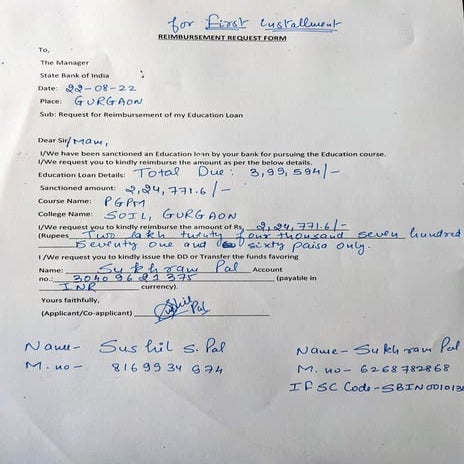 for First Installment
REIMBURSEMENT REQUEST FORM
To,
The Manager
State Bank of India
Date: 22-08-22
Place: GURGAON
Sub: Request for Reimbursement of my Education Loan
Dear Sir/Mam,
I/We have been sanctioned an Education loan by your bank for pursuing the Education course.
I/We request you to kindly reimburse the amount as per the below details.
Education Loan Details: Total Due: 3,99,594/-
Sanctioned amount: 2,24,771.6/-
Course Name: PGPM
College Name: SOIL, GURGAON
I/We request you to kindly reimburse the amount of Rs. 2,24,771.6/-
(Rupees Two lakh twenty four thousand seven hundred
Seventy one and sixty paisa only.
I/We request you to kindly issue the DD or Transfer the funds favoring
Name: Sukhram Pal Account
no.: 30409621375 (payable in
INR currency).
Yours faithfully,
(Applicant/Co-applicant) Sushil Pal
Name- Sushil S. Pal
M. no- 8169934974
Name- Sukhram Pal
M. no- 6268782868
IFSC Code-SBIN001013